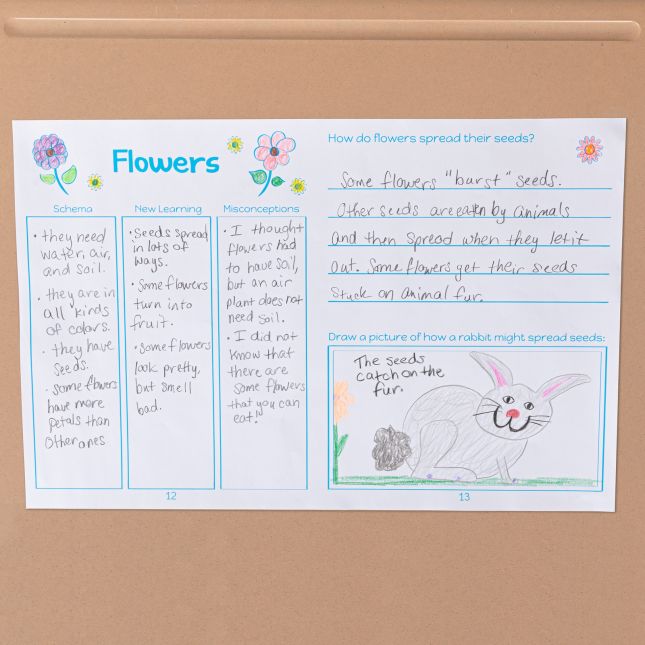 Flowers
Schema
• they need
water, air,
and soil.
• they are in
all kinds
of colors.
• they have
seeds.
• some flowers
have more
petals than
other ones.
New Learning
• Seeds spread
in lots of
ways.
• Some flowers
turn into
fruit.
• some flowers
look pretty,
but smell
bad.
Misconceptions
• I thought
flowers had
to have soil,
but an air
plant does not
need soil.
• I did not
know that
there are
some flowers
that you can
eat!
12
How do flowers spread their seeds?
Some flowers "burst" seeds.
Other seeds are eaten by animals
and then spread when they let it
out. Some flowers get their seeds
stuck on animal fur.
Draw a picture of how a rabbit might spread seeds:
The seeds
catch on the
fur.
13